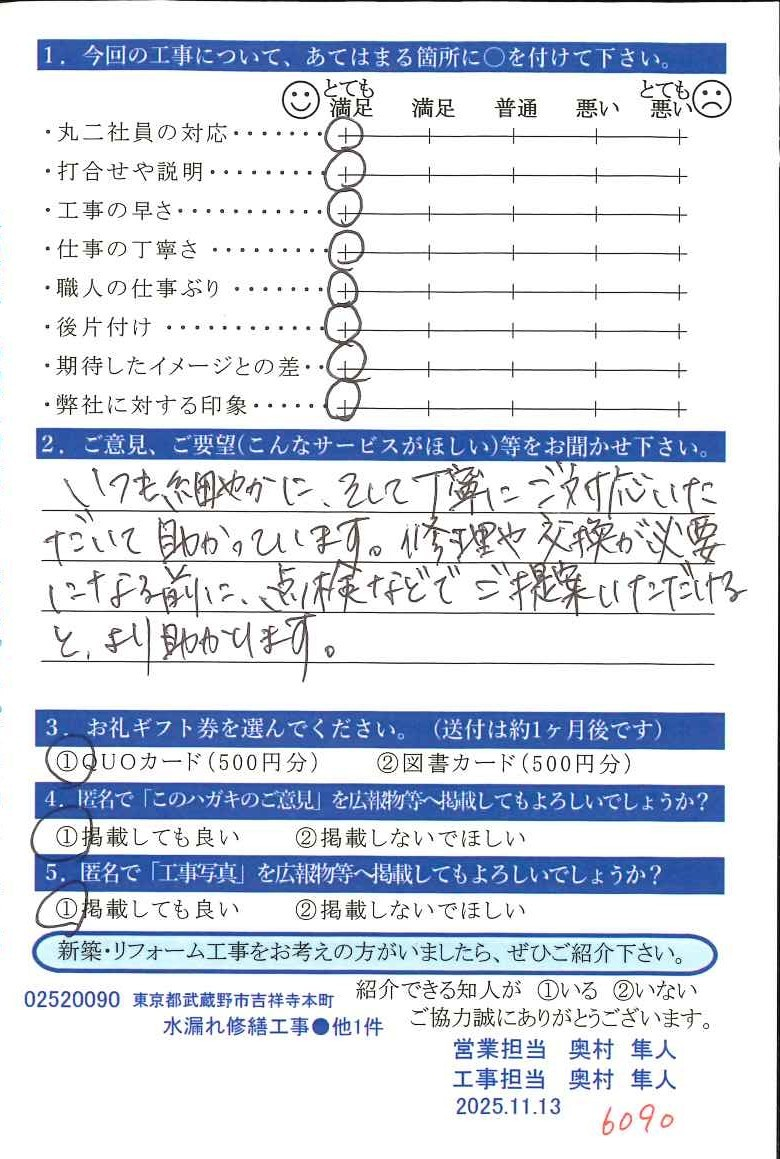 1．今回の工事について、あてはまる箇所に○を付けて下さい。
とても満足 満足 普通 悪い とても悪い
・丸二社員の対応・・・・・・・
・打合せや説明・・・・・・・・
・工事の早さ・・・・・・・・・・
・仕事の丁寧さ ・・・・・・・・
・職人の仕事ぶり ・・・・・・・
・後片付け ・・・・・・・・・・・
・期待したイメージとの差・・
・弊社に対する印象・・・・・
2．ご意見、ご要望(こんなサービスがほしい)等をお聞かせ下さい。
いつも細やかに、そして丁寧にご対応いた
だいて助かっています。修理や交換が必要
になる前に、点検などでご提案いただける
と、より助かります。
3．お礼ギフト券を選んでください。（送付は約1ヶ月後です）
①QUOカード（500円分） ②図書カード（500円分）
4．匿名で「このハガキのご意見」を広報物等へ掲載してもよろしいでしょうか？
①掲載しても良い ②掲載しないでほしい
5．匿名で「工事写真」を広報物等へ掲載してもよろしいでしょうか？
①掲載しても良い ②掲載しないでほしい
新築・リフォーム工事をお考えの方がいましたら、ぜひご紹介下さい。
紹介できる知人が ①いる ②いない
02520090 東京都武蔵野市吉祥寺本町
水漏れ修繕工事●他1件
ご協力誠にありがとうございます。
営業担当 奥村 隼人
工事担当 奥村 隼人
2025.11.13
6090